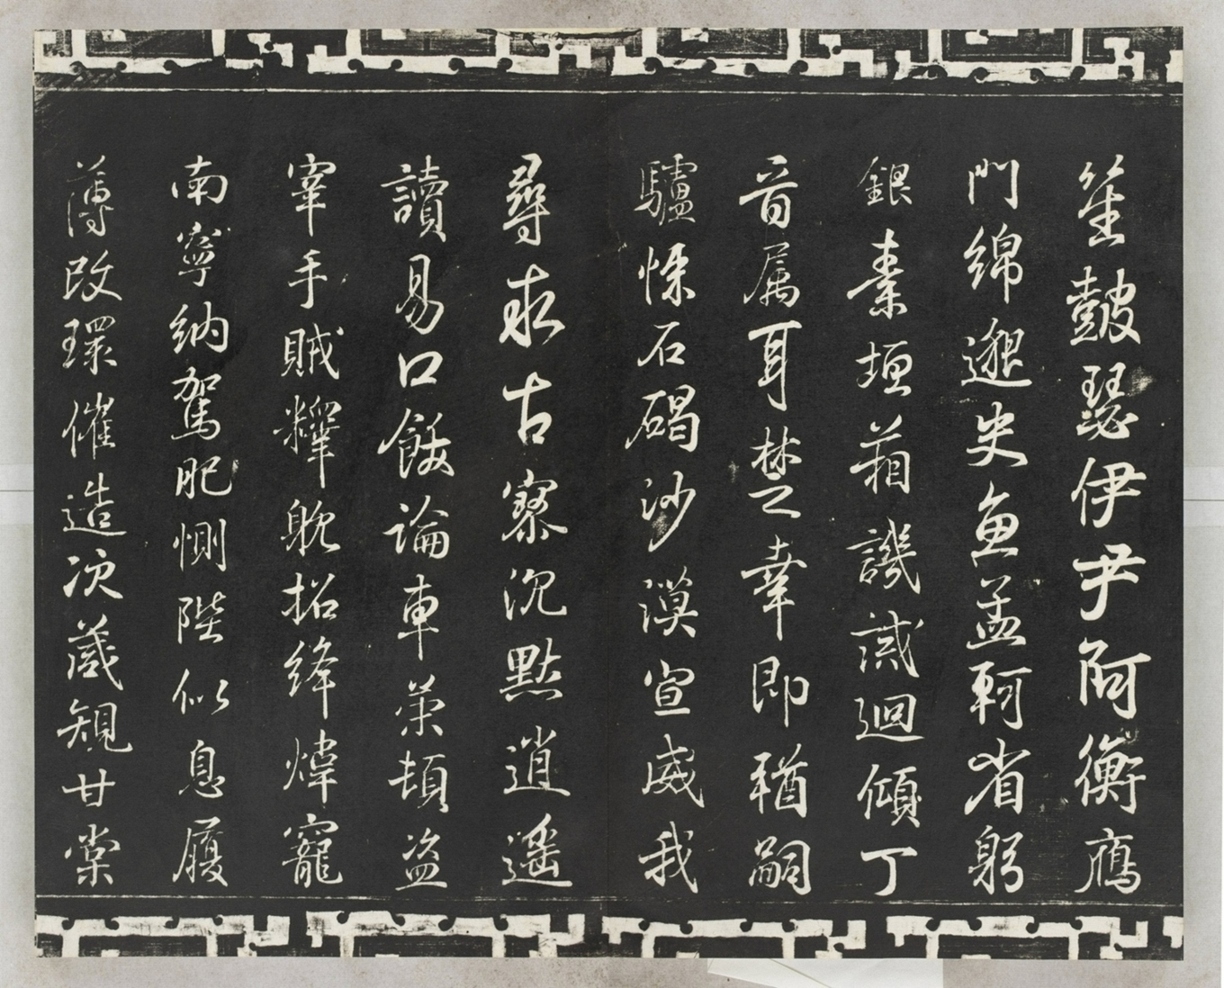 笙鼓瑟伊尹阿衡鴈
門綿邈史魚孟軻省躬
銀素垣葙譏誡迴傾丁
音属耳楚幸即輶嗣
驢悚石碣沙漠宣威我
尋求古寮沉默逍遥
讀易口飫論車策頓盗
宰手賊糧躭招絳煒寵
南寧納駕肥惻陛似息履
薄改環催造次葴規甘棠